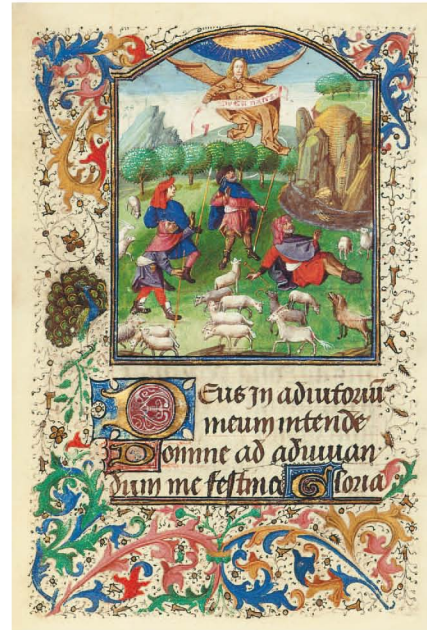 Deus In adiutoriū
meum intende
Domine ad adiuuan
dum me festina Gloria